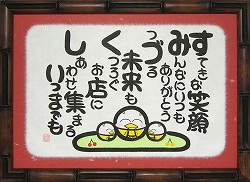 すてきな笑顔
みんなにいつも
ありがとう
つづる
未来も
くつろぐ
お店に
しあわせ集まる
いつまでも